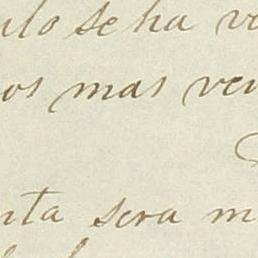 ulo se ha ve
os mas ven
nta sera m